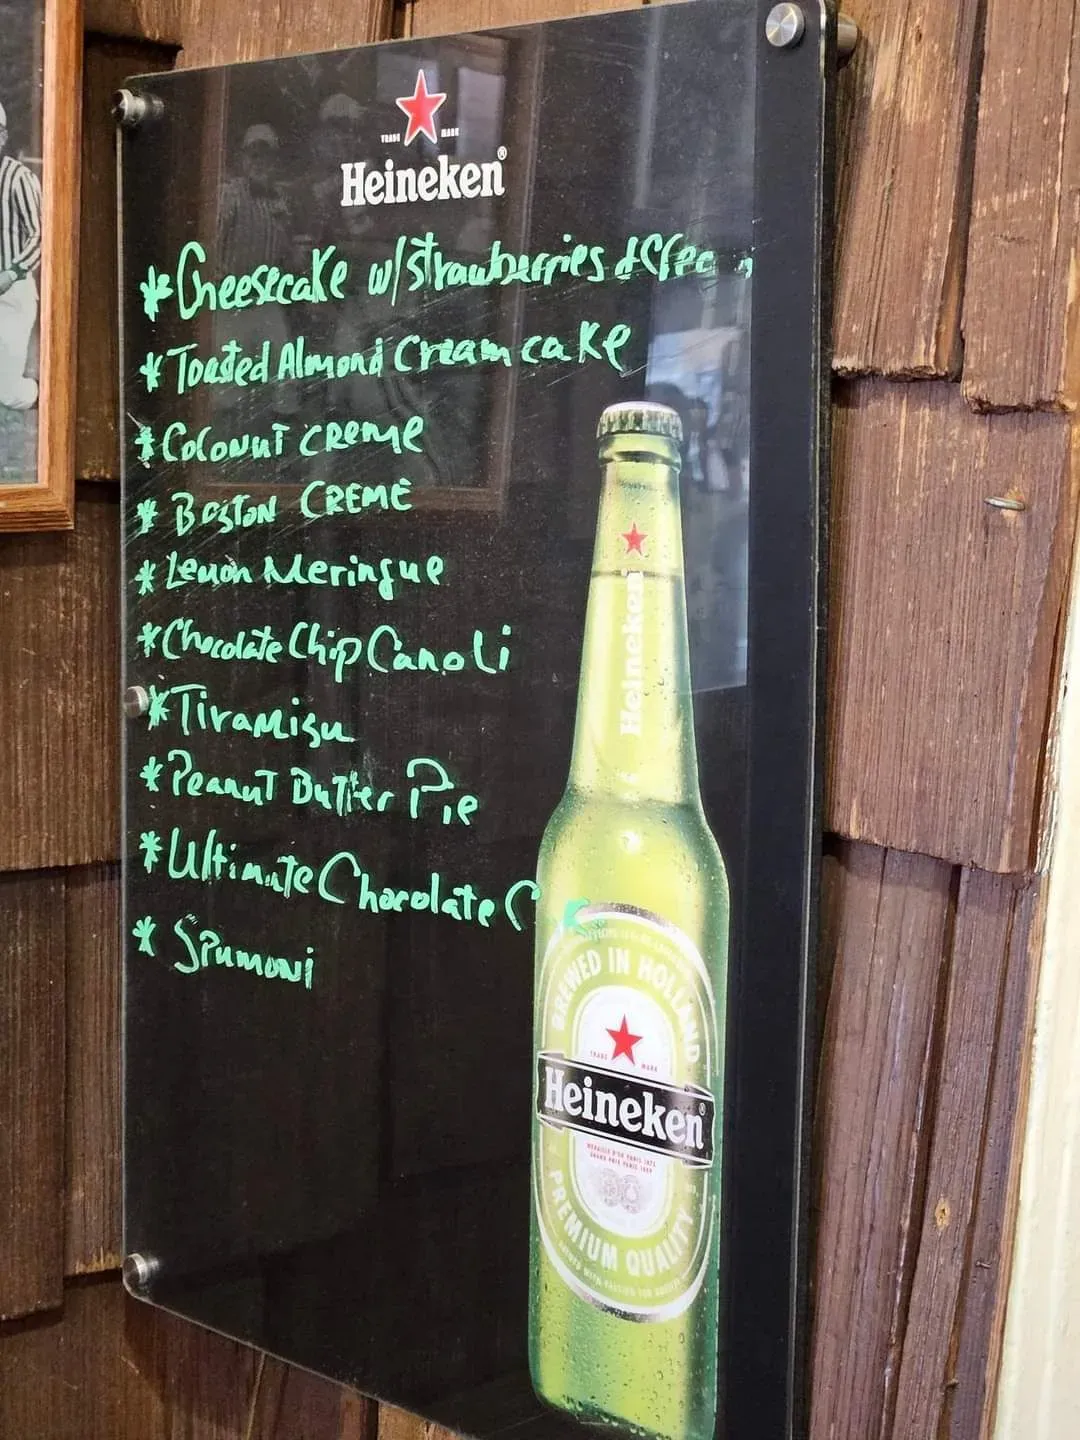 TRADE MARK
Heineken®
* Cheesecake w/strawberries & Cream
* Toasted Almond Cream cake
* Coconut CREME
* BOSTON CREME
* Lemon Meringue
* Chocolate Chip Canoli
* Tiramisu
* Peanut Butter Pie
* Ultimate Chocolate
* Spumoni
Heineken
BREWED IN HOLLAND
TRADE MARK
Heineken®
MEDAILLE D'OR PARIS 1875
GRAND PRIX PARIS 1889
PREMIUM QUALITY